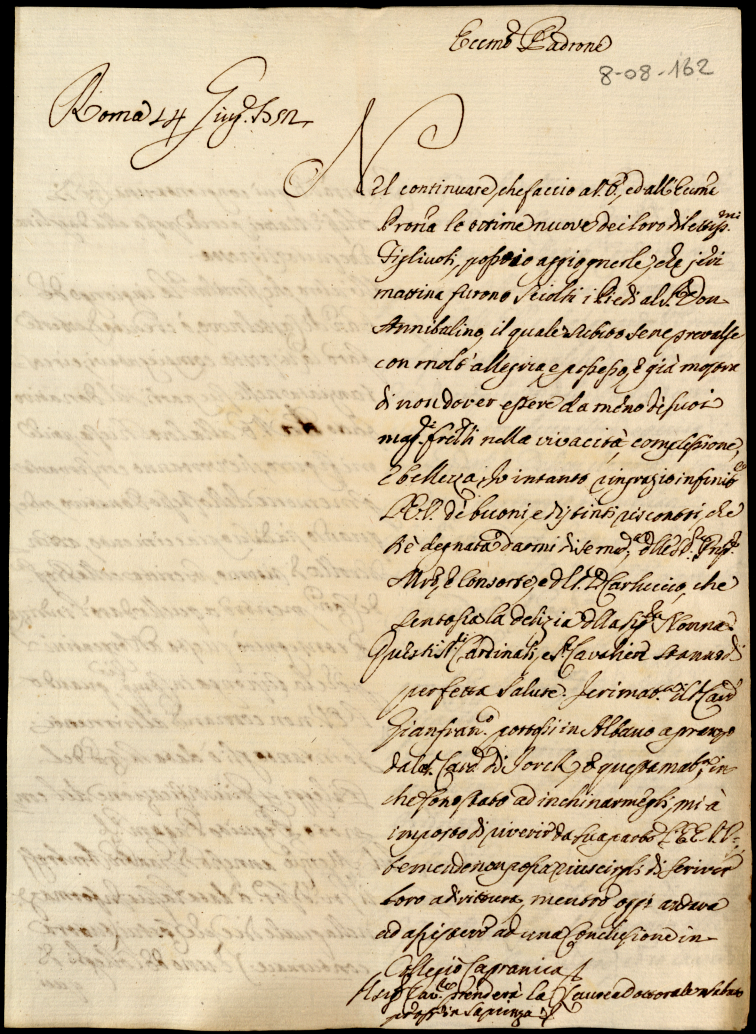 Eccmo Padrone
8-08-162
Roma 14 Giug.
Nel continuare, che faccio a V.E, ed all'Eccma
Proñra le ottime nuove dei loro dilettissmi
Figliuoli, posso aggiognerle, che jeri
mattina furono sciolti i Piedi al Sr Don
Annibalino, il quale subito se ne prevalse
con molt'allegria, e possesso, e già mostra
di non dover essere da meno di suoi
magri frelli nella vivacità, complessione,
e bellezza. Io intanto ringrazio infinite
L'E.V. de' buoni, e distinti riscontri, che
si è degnata darmi di se med, della Sra
Consorte, e del Sr D Carluccio, che
sento sia la delizia della Sigra Nonna.
Questi Sri Cardinali, e Sr Cavaliere stanno di
perfetta salute. Jeri mattna il Sr Card
Gianfranco portossi in Albano a pranzo
dal Sr Card di Jorck, e questa mattna, in
che sono stato ad inchinarmegli, mi à
imposto di riverir da sua parte L'EE.VV.
temendo non possa riuscirgli di scriver
loro a dirittura, mentre oggi andava
ad assistere ad una Conclusione in
Collegio Capranica
Il Sigr Cavre prenderà la Laurea Dottorale sabato
pross in Sapienza